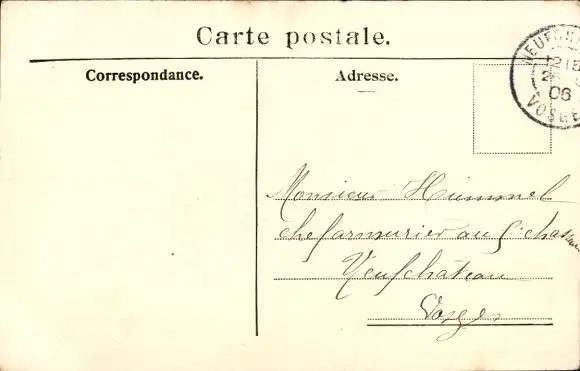 Carte postale.
Correspondance.
Adresse.
NEUFCHA
1215
26
06
VOSGES
Monsieur Himmel
chef armurier au 5e chasseurs
Neufchâteau
Vosges